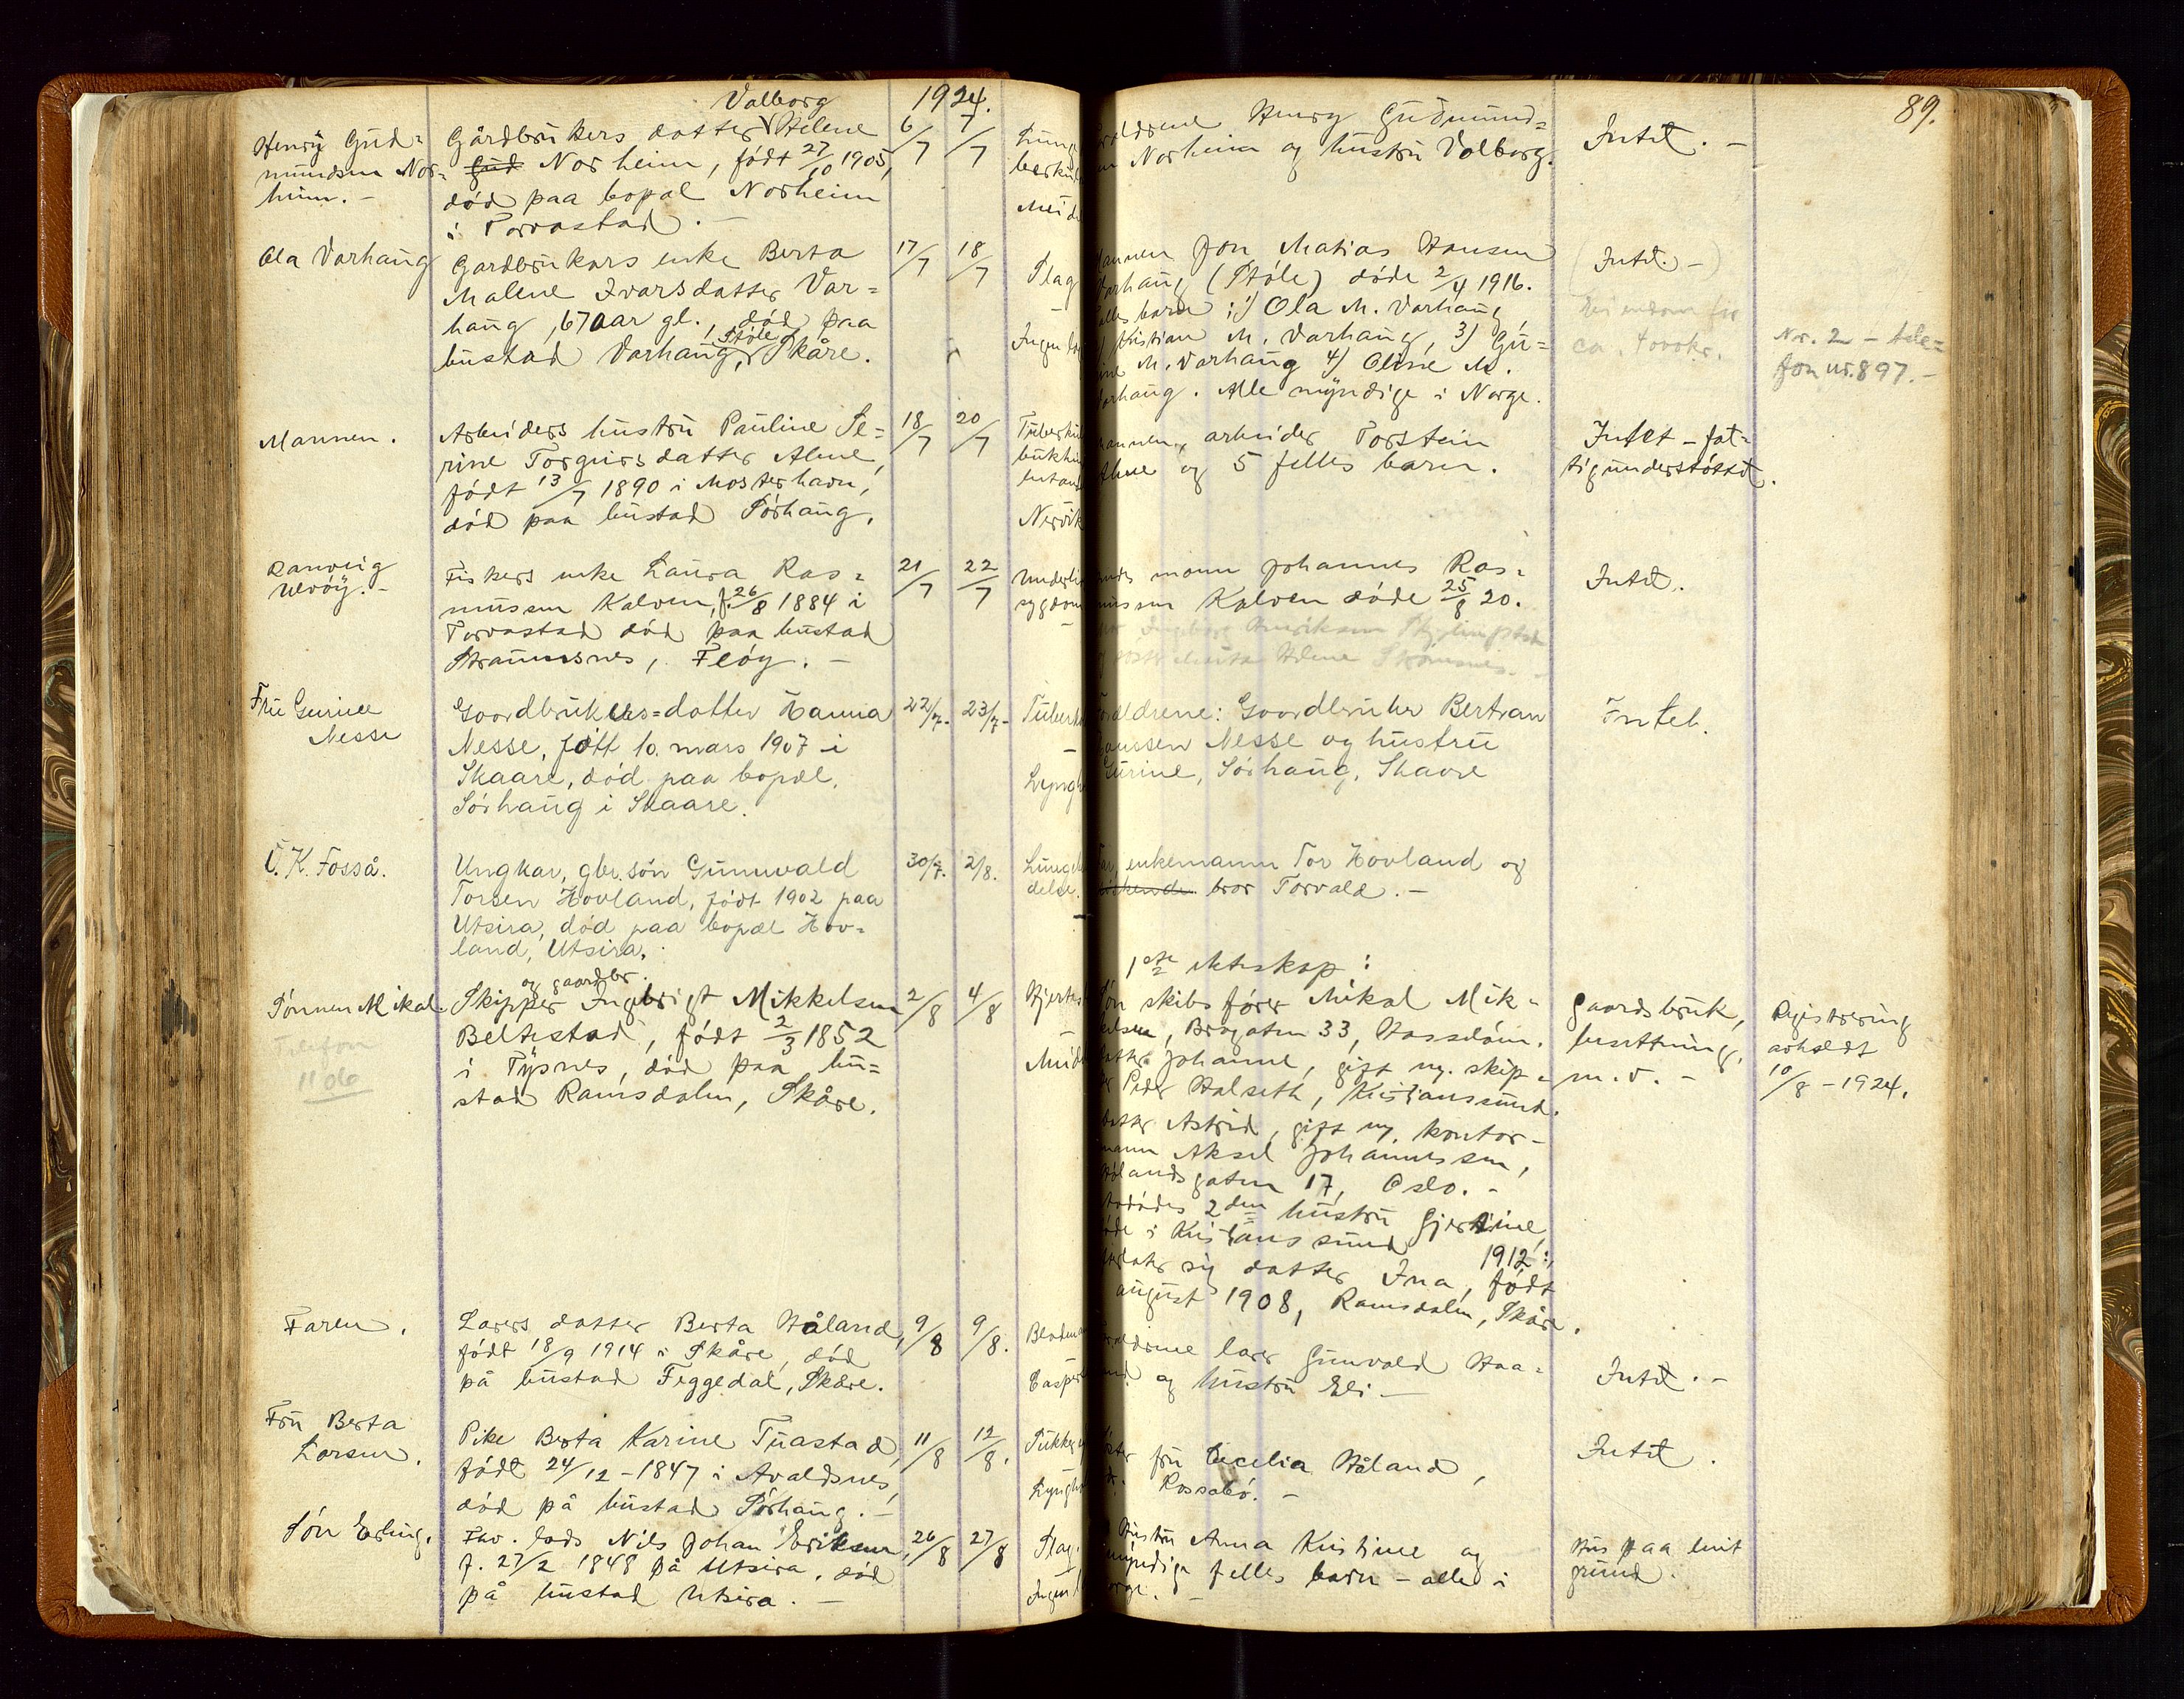 1924.
89.
Henry Gud=
mundsen Nor=
heim. -
Valborg
Gårdbrukers datter Helene
Gud Norheim, født 27/10 1905,
død paa bopæl Norheim
i Torvastad. -
6/7
7/7
Foreldrene Henry Gudmund=
sen Norheim og hustru Valborg.
Intet. -
Ola Varhaug
Gardbrukars enke Berta
Malene Ivarsdatter Var=
haug, 67 aar gl., død paa
bustad Varhaug, Støle, Skåre.
17/7
18/7
Slag
-
Ingen læ
Mannen Jon Matias Hansen
Varhaug (Støle) døde 2/4 1916.
Felles barn: 1) Ola M. Varhaug
2) Kristian M. Varhaug, 3) Gu=
rine M. Varhaug 4) Oline M.
Varhaug. Alle myndige i Norge.
(Intet. -)
Eiendom for
ca. 4000 kr.
Nr. 2 - tele=
fon nr. 897. -
Mannen.
Arbeiders hustru Pauline Se=
rine Torgeirsdatter Alne,
født 13/7 1890 i Mosterhavn,
død paa bustad Sørhaug.
18/7
20/7
Tuberkul
bukhin
betænd
Nervik
Mannen, arbeider Torstein
Alne og 5 felles barn.
Intet - fat=
tigunderstøttet.
Ranveig
Utvøy. -
Fiskers enke Laura Ras=
mussen Kalven, f. 26/8 1884 i
Torvastad død paa bustad
Straumsnes, Fløy. -
21/7
22/7
Underli
sygdom
-
mann Johannes Ras=
mussen Kalven døde 25/8 20.
Ingeborg Henriksen
Intet.
Fru Gurine
Nesse
Gaardbrukers=datter Hanna
Nesse, født 10. mars 1907 i
Skaare, død paa bopæl.
Sørhaug i Skaare.
22/7-
23/7-
Tuberku
-
Lyngh
Forældrene: Gaardbruker Bertran
Hanssen Nesse og hustru
Gurine, Sørhaug, Skaare
Intet.
O. K. Fosså.
Ungkar, gbr. søn Gunnvald
Torsen Hovland, født 1902 paa
Utsira, død paa bopæl Hov=
land, Utsira.
30/7.
2/8.
Lungebe
delse.
Far, enkemann Tor Hovland og
søskende bror Torvald. -
Sønnen Mikal.
Telefon
1106
og gaardbr.
Skipper Ingebrigt Mikkelsen
Beltestad, født 2/3 1852
i Tysnes, død paa bu=
stad Ramsdalen, Skåre.
2/8
4/8
Hjertes
-
1ste ekteskap:
Søn skibsfører Mikal Mik=
kelsen, Brogaten 33, Hasseløen.
datter Johanne, gift m. skip=
per Peder Halseth, Kristiansund.
datter Astrid, gift m. kontor-
mann Aksel Johannessen,
Hølandsgaten 17, Oslo. -
Avdødes 2den hustru Gjertine,
døde i Kristianssund 1912:
efterlater sig datter Ina, født
august 1908, Ramsdalen, Skåre.
Gaardsbruk,
besettning,
m. v. -
Registrering
avholdt
10/8 - 1924.
Faren.
Lærers datter Berta Håland,
født 18/9 1914 i Skåre, død
på bustad Feggedal, Skåre.
9/8
9/8.
Foreldrene lærer Gunvald Haa=
land og hustru Eli -
Intet. -
Fru Berta
Larsen.
Pike Berta Karine Tuastad,
født 24/12 - 1847 i Avaldsnes,
død på bustad Sørhaug. -
11/8
12/8.
Sukkersy
Lyngho
Søster fru Cecelia Håland,
Rossabø. -
Intet.
Søn Erling.
Fhv. lods Nils Johan Eriksen,
f. 27/2 1848 på Utsira, død
på bustad Utsira. -
26/8
27/8
Slag.
Ingen l
Hustru Anna Kristine og
myndige felles barn - alle i
Norge. -
Hus paa leiet
grund.